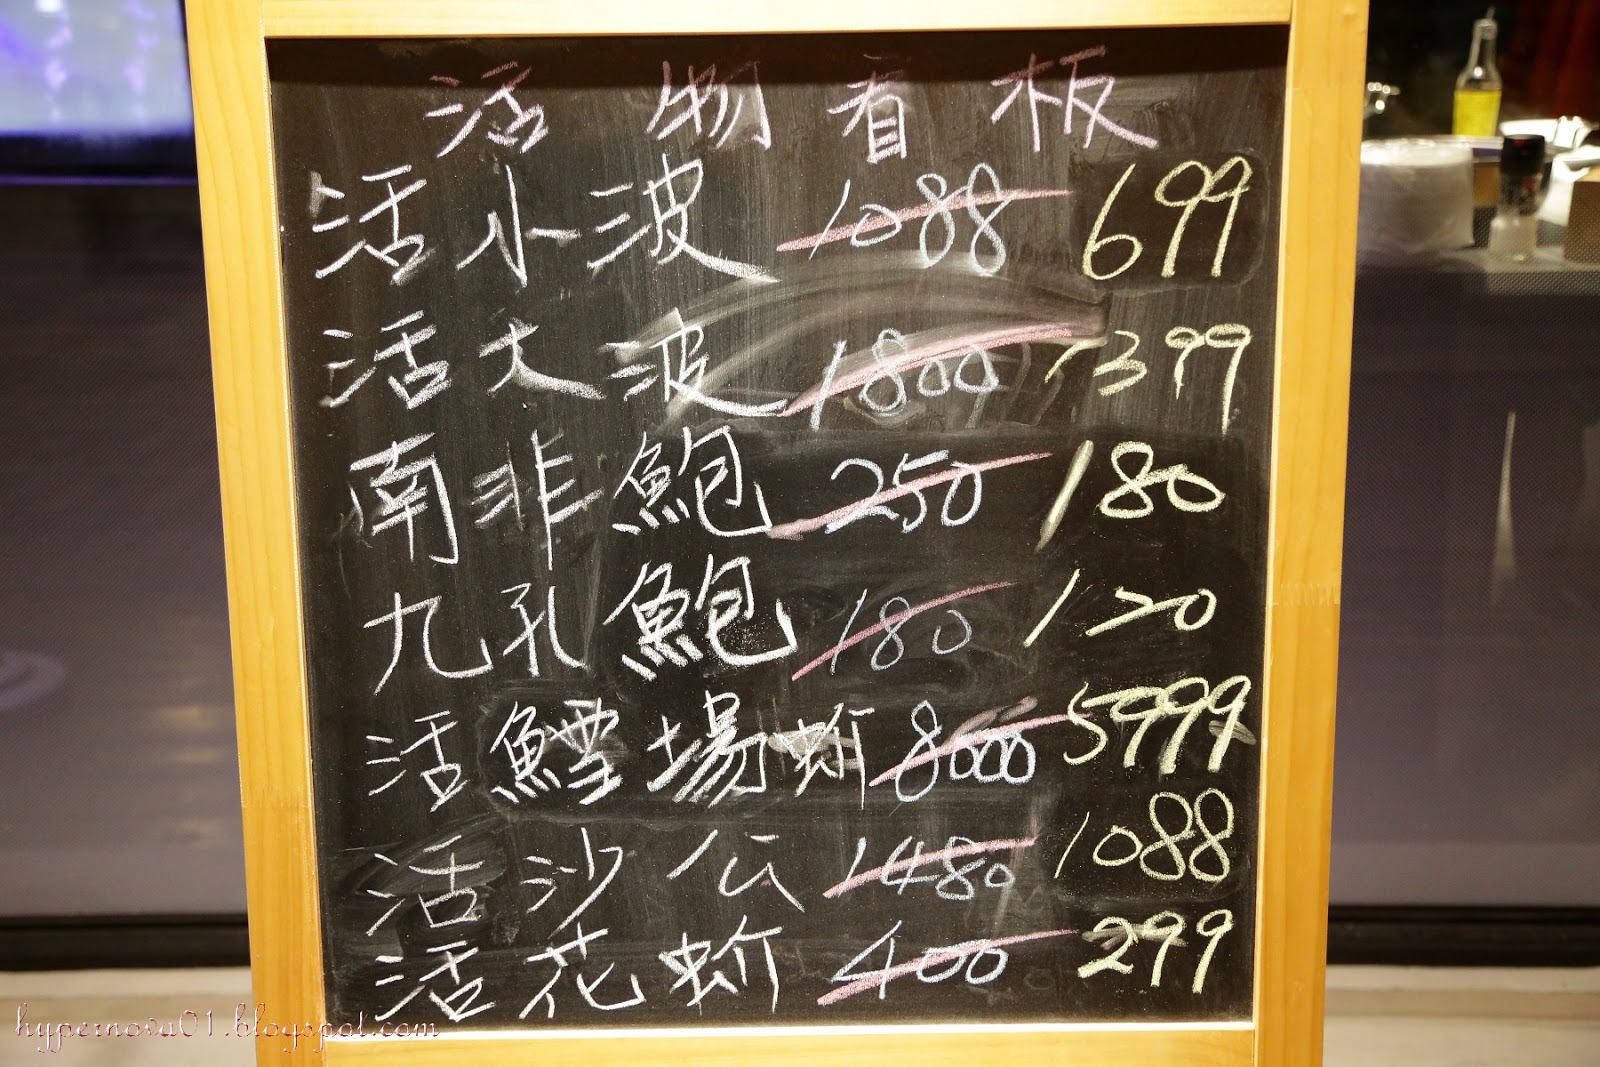 活物看板
活小波 1088 699
活大波 1800 1399
南非鮑 250 180
九孔鮑 180 120
活鱈場蚧 8000 5999
活沙公 1480 1088
活花蚧 400 299
hypernova01.blogspot.com